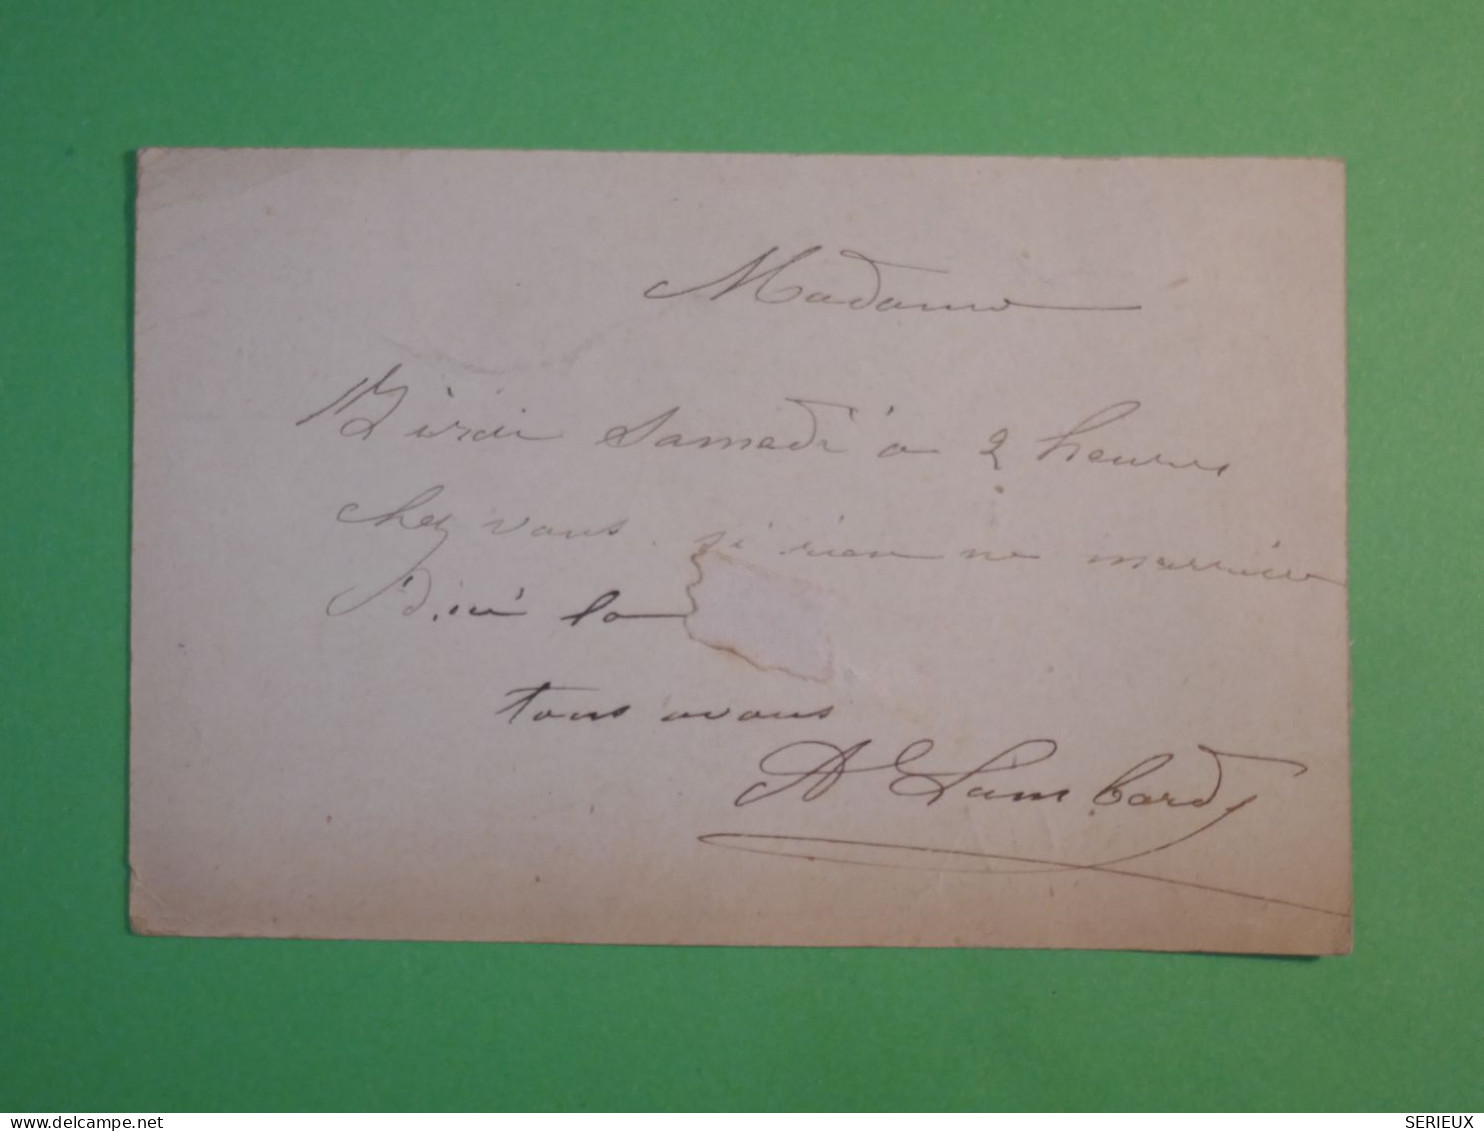 Madame
J'irai Samedi à 2 heures
chez vous. si rien ne m'arrive
d'ici la
tous avous
A Lombard
www.delcampe.net
SERIEUX